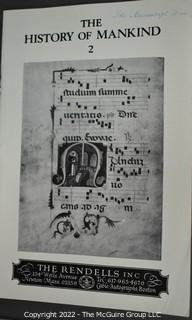 THE
HISTORY OF MANKIND
2
studium summe
ueritatis. ps Dñe
quid. Euouae.
no
THE RENDELLS INC
154 Wells Avenue Tel: 617-965-4670
Newton, Mass. 02159 Cable: Autographs Boston
Copyright © 2022 - The McGuire Group, Inc